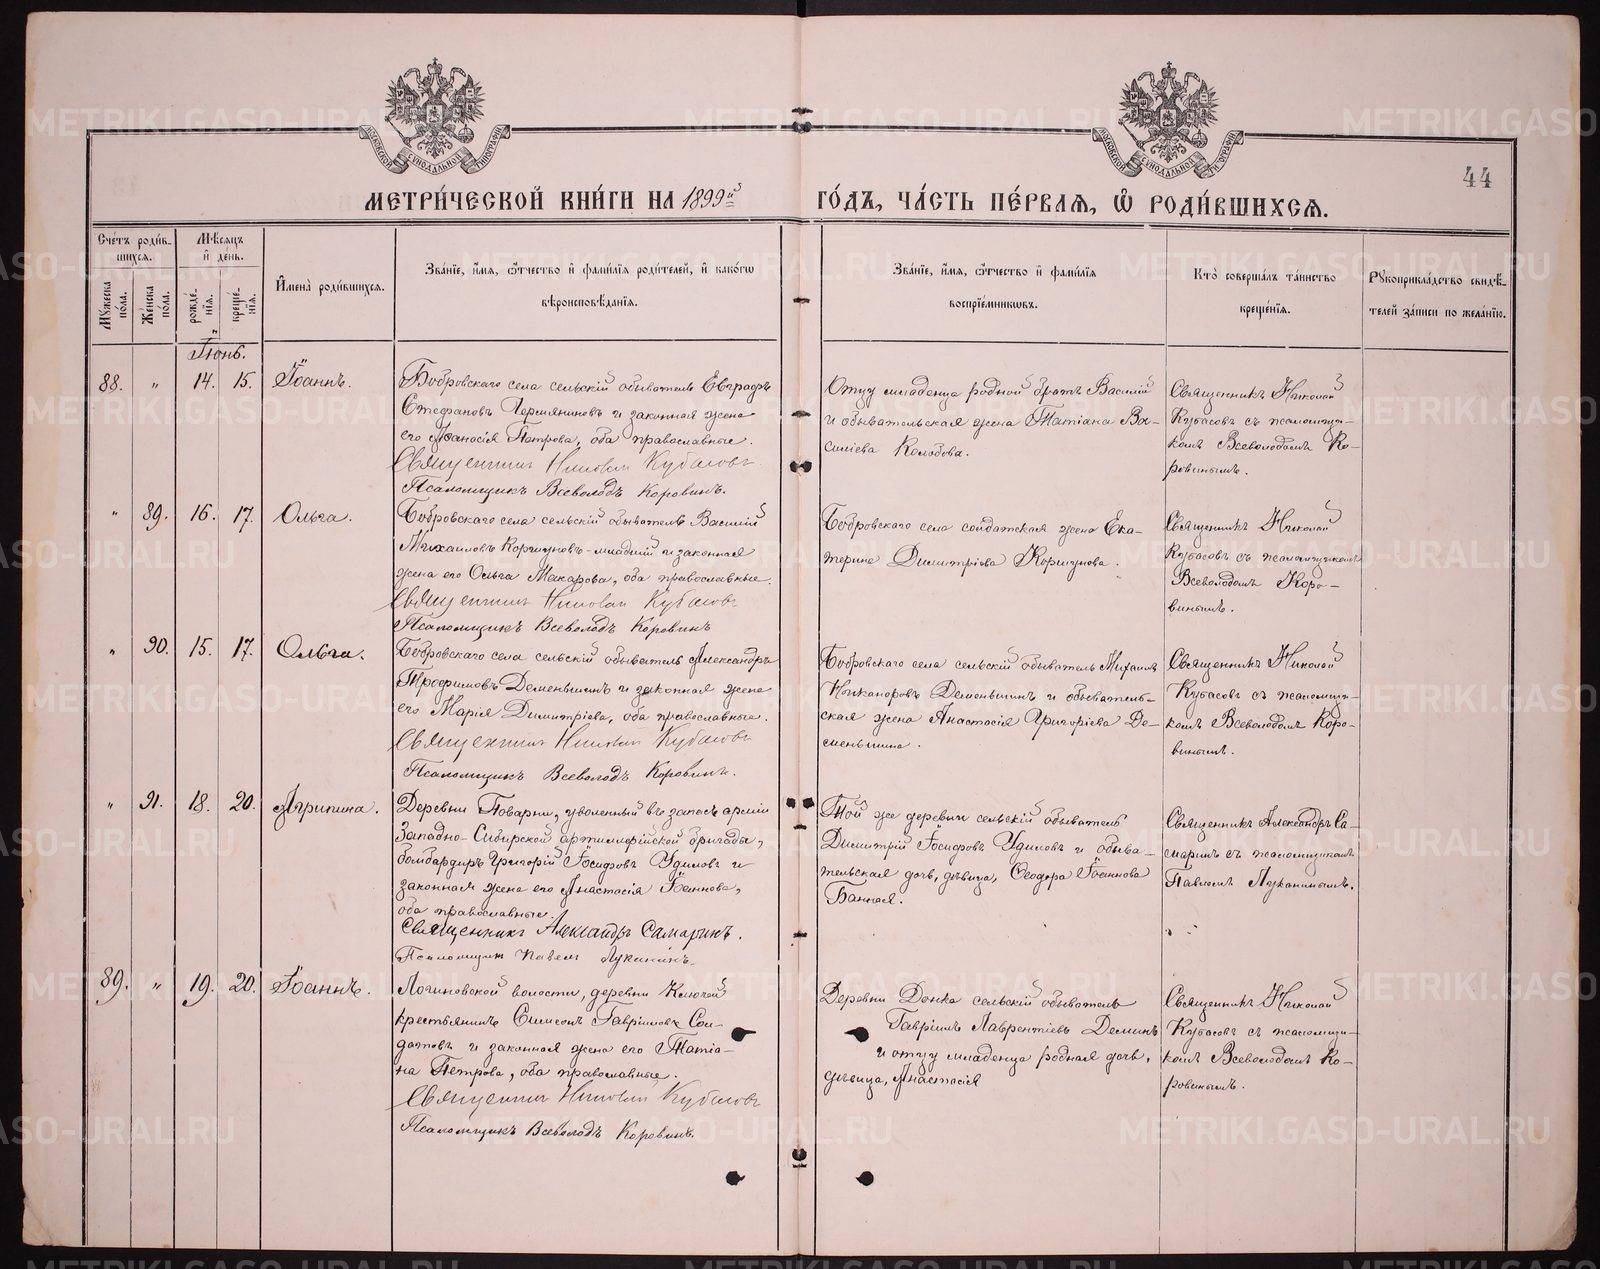 44
МЕТРИ́ЧЕСКОЙ КНИ́ГИ НА 1899й ГО́ДЪ, ЧА́СТЬ ПЕ́РВАЯ, Ѿ РОДИ́ВШИХСЯ.
Сче́тъ роди́в-
шихся.
Мꙋ́жеска по́ла.
Же́нска по́ла.
Мѣ́сяцъ
и҆ де́нь.
рожде́-
нїя.
креще́-
нїя.
И҆мена̀ роди́вшихся.
Зва́нїе, и҆́мя, ѻ҆́тчество и҆ фами́лїя роди́телей, и҆ како́гѡ
вѣроисповѣ́данїя.
Зва́нїе, и҆́мя, ѻ҆́тчество и҆ фами́лїя
воспрїе́мникѡвъ.
Кто̀ соверша́лъ та́инство
креще́нїя.
Рꙋкоприкла́дство свидѣ́-
телей за́писи по жела́нїю.
Іюнь.
88. „ 14. 15. Іоаннъ.
Бобровскаго села сельскій обыватель Евграфъ
Стефановъ и законная жена
его Аѳанасія Петрова, оба православные.
Священникъ Николай Кубасовъ
Псаломщикъ Всеволодъ Коровинъ.
Отцу младенца родной братъ Василій
и обывательская жена Татіана Ва-
силіева Колобова.
Священникъ Николай
Кубасовъ съ псаломщи-
комъ Всеволодомъ Ко-
ровинымъ.
„ 89. 16. 17. Ольга.
Бобровскаго села сельскій обыватель Василій
Михаиловъ Коршуновъ-младшій и законная
жена его Ольга Макарова, оба православные.
Священникъ Николай Кубасовъ
Псаломщикъ Всеволодъ Коровинъ
Бобровскаго села солдатская жена Ека-
терина Димитріева Коршунова.
Священникъ Николай
Кубасовъ съ псаломщикомъ
Всеволодомъ Коро-
винымъ.
„ 90. 15. 17. Ольга.
Бобровскаго села сельскій обыватель Александръ
Трофимовъ Деменьшинъ и законная жена
его Марія Димитріева, оба православные.
Священникъ Николай Кубасовъ
Псаломщикъ Всеволодъ Коровинъ.
Бобровскаго села сельскій обыватель Михаилъ
Никаноровъ Деменьшинъ и обыватель-
ская жена Анастасія Григоріева Де-
меньшина.
Священникъ Николай
Кубасовъ съ псаломщи-
комъ Всеволодомъ Коро-
винымъ.
„ 91. 18. 20. Агрипина.
Деревни Поварни, уволенный въ запасъ арміи
Западно-Сибирской артиллерійской бригады,
бомбардиръ Григорій Іосифовъ Удиловъ и
законная жена его Анастасія Іоаннова,
оба православные.
Священникъ Александръ Самаринъ.
Псаломщикъ Павелъ Луканинъ.
Той же деревни сельскій обыватель
Димитрій Іосифовъ Удиловъ и обыва-
тельская дочь, дѣвица, Ѳеодора Іоаннова
Банная.
Священникъ Александръ Са-
маринъ съ псаломщикомъ
Павломъ Луканинымъ.
89. „ 19. 20. Іоаннъ.
Логиновской волости, деревни Ключей
крестьянинъ Симеонъ Гавріиловъ Сол-
датовъ и законная жена его Татіа-
на Петрова, оба православные.
Священникъ Николай Кубасовъ
Псаломщикъ Всеволодъ Коровинъ.
Деревни сельскій обыватель
Гавріилъ Лаврентіевъ Деминъ
и отцу младенца родная дочь,
дѣвица, Анастасія
Священникъ Николай
Кубасовъ съ псаломщи-
комъ Всеволодомъ Ко-
ровинымъ.